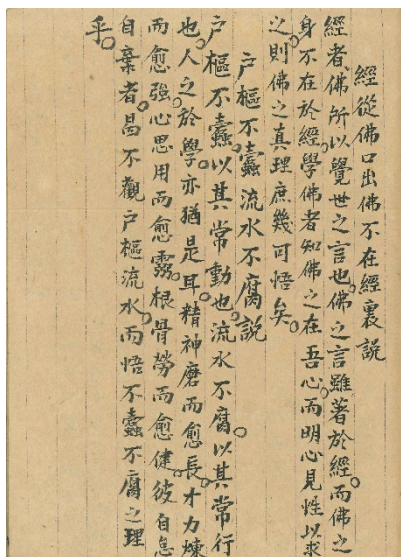 經從佛口出佛不在經裏說
經者佛所以覺世之言也。佛之言雖著於經。而佛之
身不在於經。學佛者知佛之在吾心。而明心見性以求
之。則佛之真理庶幾可悟矣。
户樞不蠹流水不腐說
户樞不蠹。以其常動也。流水不腐。以其常行
也。人之於學。亦猶是耳。精神磨而愈長。才力煉
而愈強。心思用而愈靈。根骨勞而愈健。彼自怠
自棄者。曷不觀户樞流水。而悟不蠹不腐之理
乎。